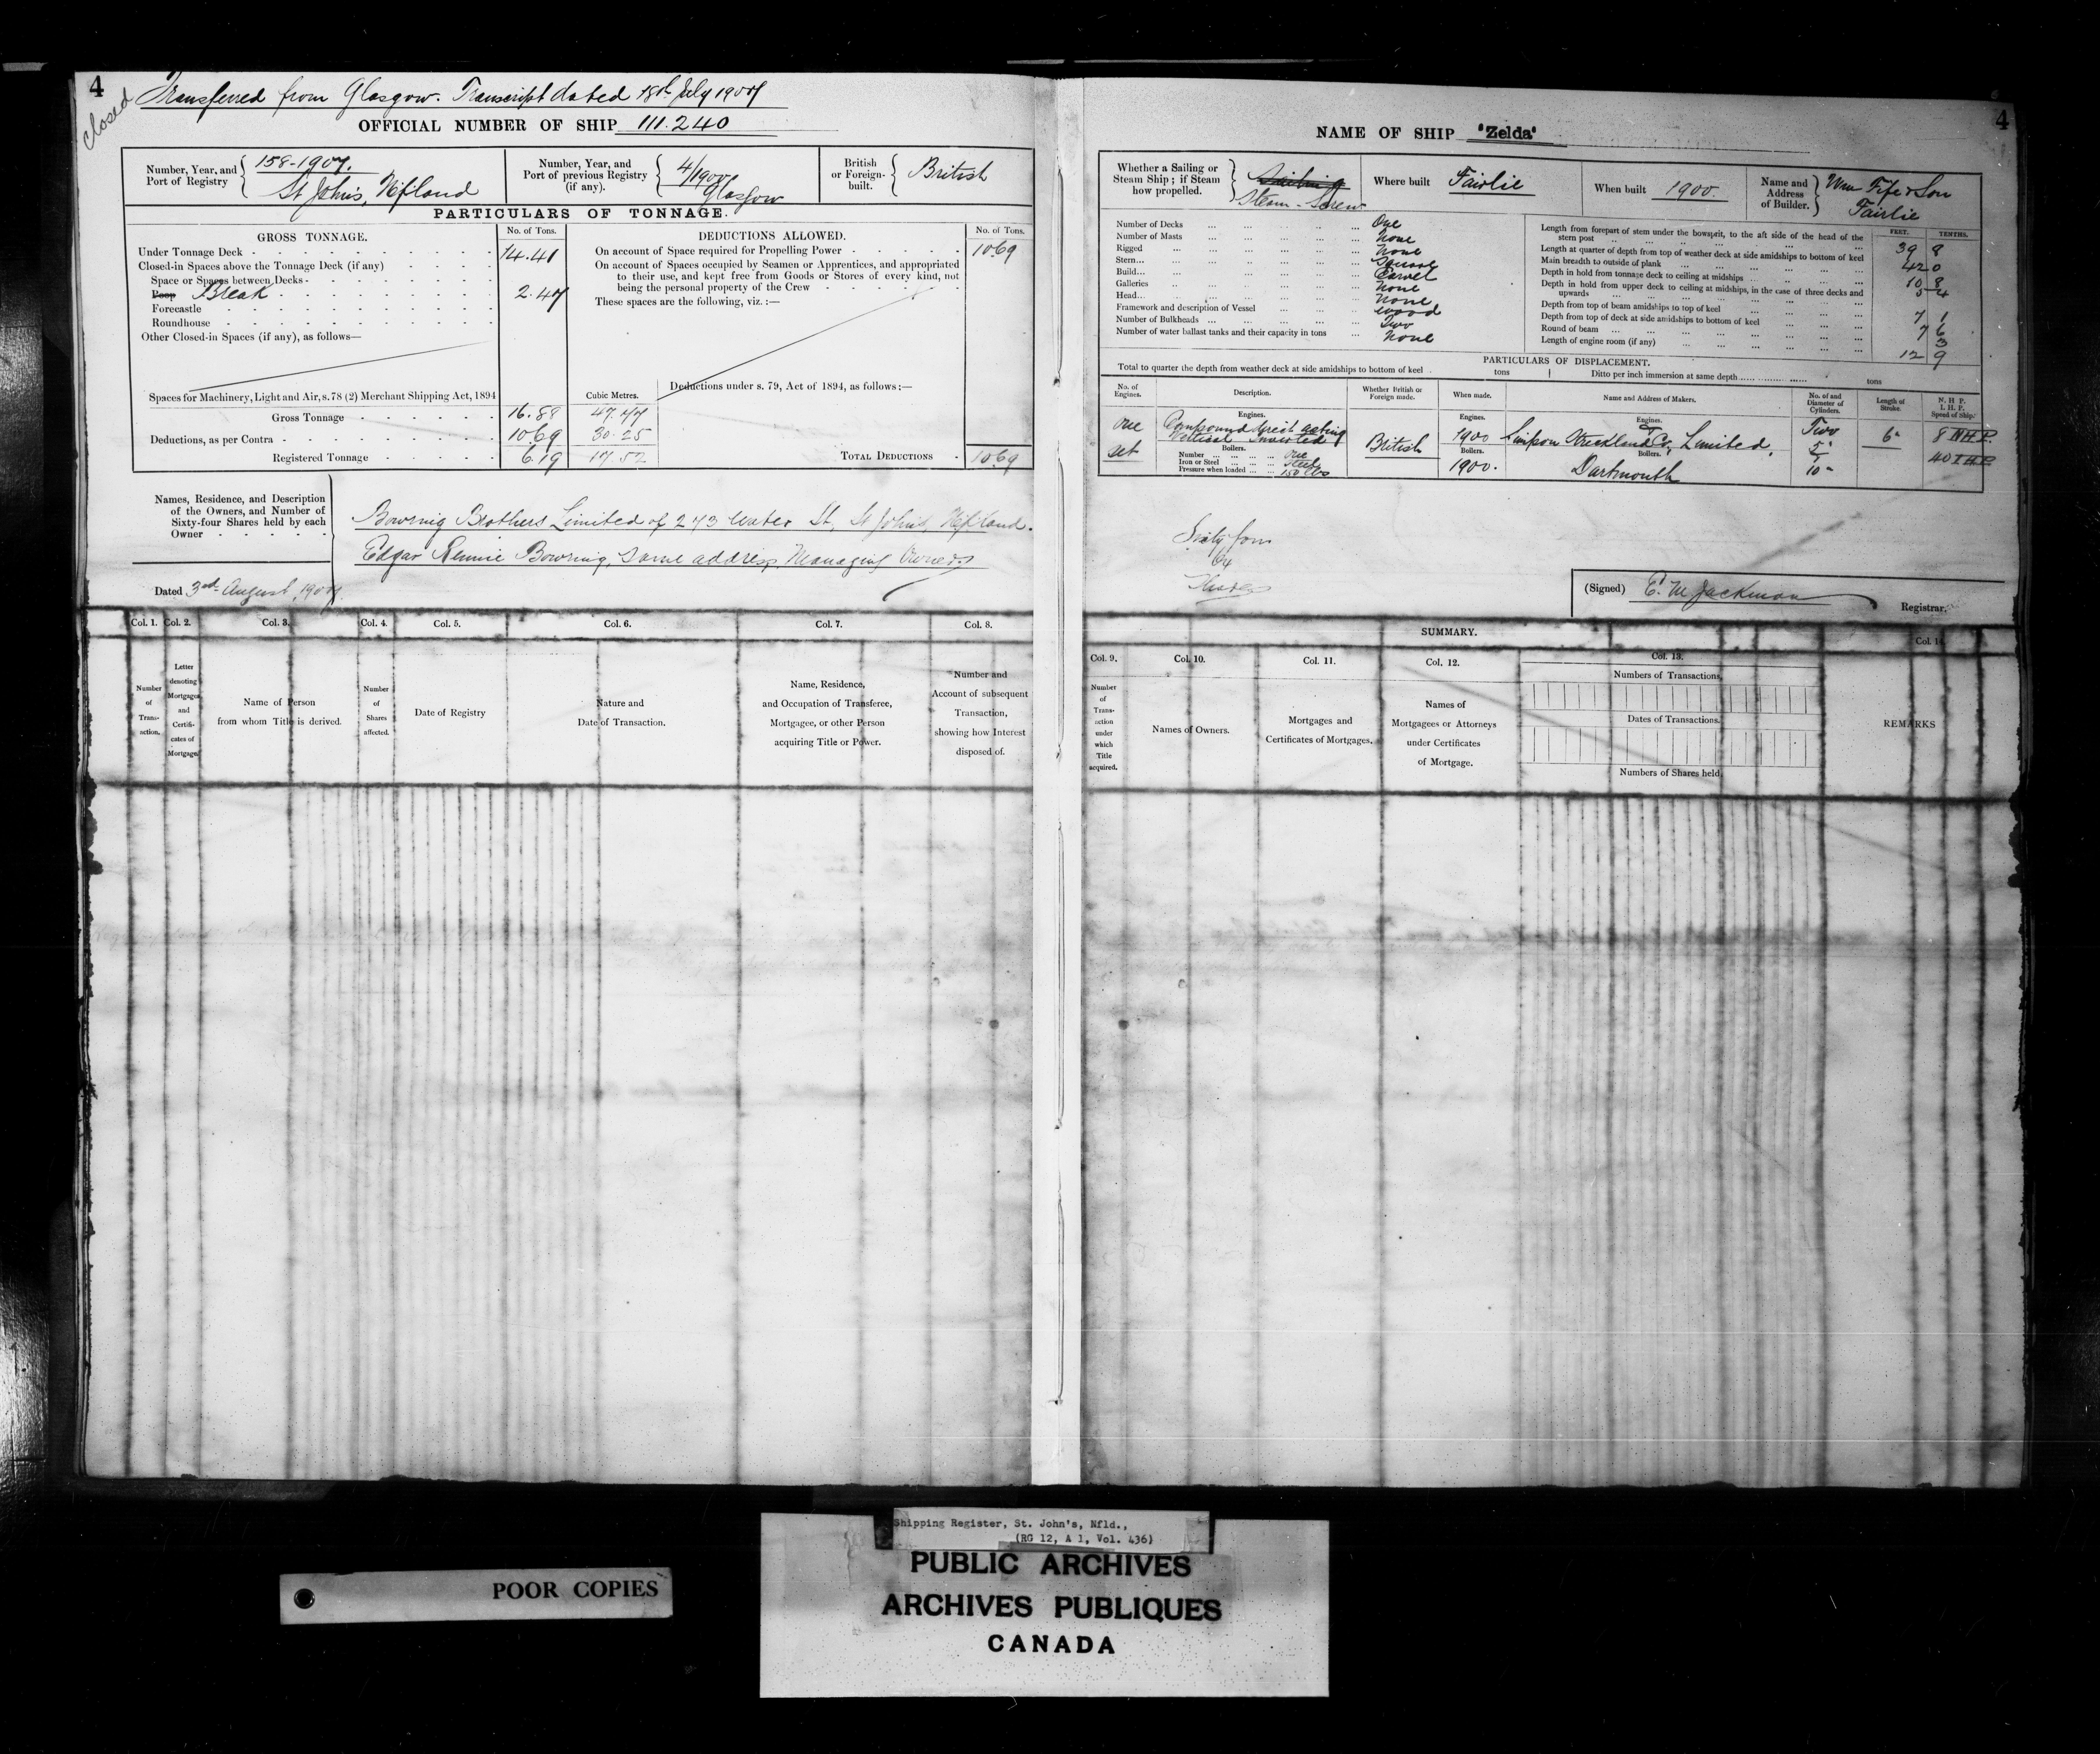 4
closed
Transferred from Glasgow. Transcript dated 18th July 1907
OFFICIAL NUMBER OF SHIP 111.240
Number, Year, and Port of Registry
158-1907.
St John's, Nfland
Number, Year, and Port of previous Registry (if any).
4/1900
Glasgow
British or Foreign-built.
British
PARTICULARS OF TONNAGE.
GROSS TONNAGE.
No. of Tons.
Under Tonnage Deck - 14.41
Closed-in Spaces above the Tonnage Deck (if any)
Space or Spaces between Decks -
Poop Break 2.47
Forecastle
Roundhouse
Other Closed-in Spaces (if any), as follows—
Spaces for Machinery, Light and Air, s. 78 (2) Merchant Shipping Act, 1894
Cubic Metres.
Gross Tonnage 16.88 47.77
Deductions, as per Contra 10.69 30.25
Registered Tonnage 6.19 17.52
DEDUCTIONS ALLOWED.
No. of Tons.
On account of Space required for Propelling Power 10.69
On account of Spaces occupied by Seamen or Apprentices, and appropriated
to their use, and kept free from Goods or Stores of every kind, not
being the personal property of the Crew
These spaces are the following, viz. :—
Deductions under s. 79, Act of 1894, as follows :—
TOTAL DEDUCTIONS - 10.69
Names, Residence, and Description
of the Owners, and Number of
Sixty-four Shares held by each
Owner
Bowring Brothers Limited of 273 Water St, St John's, Nfland.
Edgar Rennie Bowring, same address, Managing Owner
Dated 3rd August, 1907
Col. 1. Col. 2. Col. 3. Col. 4. Col. 5. Col. 6. Col. 7. Col. 8.
Number of Trans-action.
Letter denoting Mortgages and Certifi-cates of Mortgage.
Name of Person
from whom Title is derived.
Number of Shares affected.
Date of Registry
Nature and
Date of Transaction.
Name, Residence,
and Occupation of Transferee,
Mortgagee, or other Person
acquiring Title or Power.
Number and
Account of subsequent
Transaction,
showing how Interest
disposed of.
4
NAME OF SHIP "Zelda"
Whether a Sailing or
Steam Ship; if Steam
how propelled.
Sailing
Steam - Screw
Where built Fairlie
When built 1900.
Name and Address of Builder.
Wm Fife & Son
Fairlie
Number of Decks One
Number of Masts None
Rigged None
Stern Square
Build Carvel
Galleries None
Head None
Framework and description of Vessel Wood
Number of Bulkheads Two
Number of water ballast tanks and their capacity in tons None
FEET. TENTHS.
Length from forepart of stem under the bowsprit, to the aft side of the head of the
stern post 39 8
Length at quarter of depth from top of weather deck at side amidships to bottom of keel 42 0
Main breadth to outside of plank 10 8
Depth in hold from tonnage deck to ceiling at midships 5 4
Depth in hold from upper deck to ceiling at midships, in the case of three decks and
upwards
Depth from top of beam amidships to top of keel 7 1
Depth from top of deck at side amidships to bottom of keel 7 6
Round of beam 3
Length of engine room (if any) 12 9
PARTICULARS OF DISPLACEMENT.
Total to quarter the depth from weather deck at side amidships to bottom of keel tons
Ditto per inch immersion at same depth tons
No. of Engines.
Description.
Whether British or Foreign made.
When made.
Name and Address of Makers.
No. of and Diameter of Cylinders.
Length of Stroke.
N. H. P.
I. H. P.
Speed of Ship.
One
set
Engines.
Compound direct acting
Vertical Inverted
Boilers.
Number One
Iron or Steel Steel
Pressure when loaded 150 lbs
British
Engines.
1900
Boilers.
1900.
Engines.
Simpson Strickland & Co, Limited,
Boilers.
Dartmouth
Two
5"
10"
6"
8 N.H.P.
40 I.H.P.
Sixty four
64
Shares
(Signed) E. M. Jackman
Registrar.
SUMMARY.
Col. 9. Col. 10. Col. 11. Col. 12. Col. 13. Col. 14
Number of Trans-action under which Title acquired.
Names of Owners.
Mortgages and
Certificates of Mortgages.
Names of
Mortgagees or Attorneys
under Certificates
of Mortgage.
Numbers of Transactions.
Dates of Transactions.
Numbers of Shares held.
REMARKS
Shipping Register, St. John's, Nfld.,
(RG 12, A 1, Vol. 436)
POOR COPIES
PUBLIC ARCHIVES
ARCHIVES PUBLIQUES
CANADA